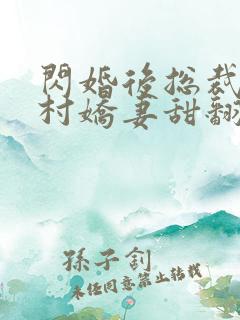 閃婚後總裁
村嬌妻甜翻
孫子釗
未經同意禁止轉載